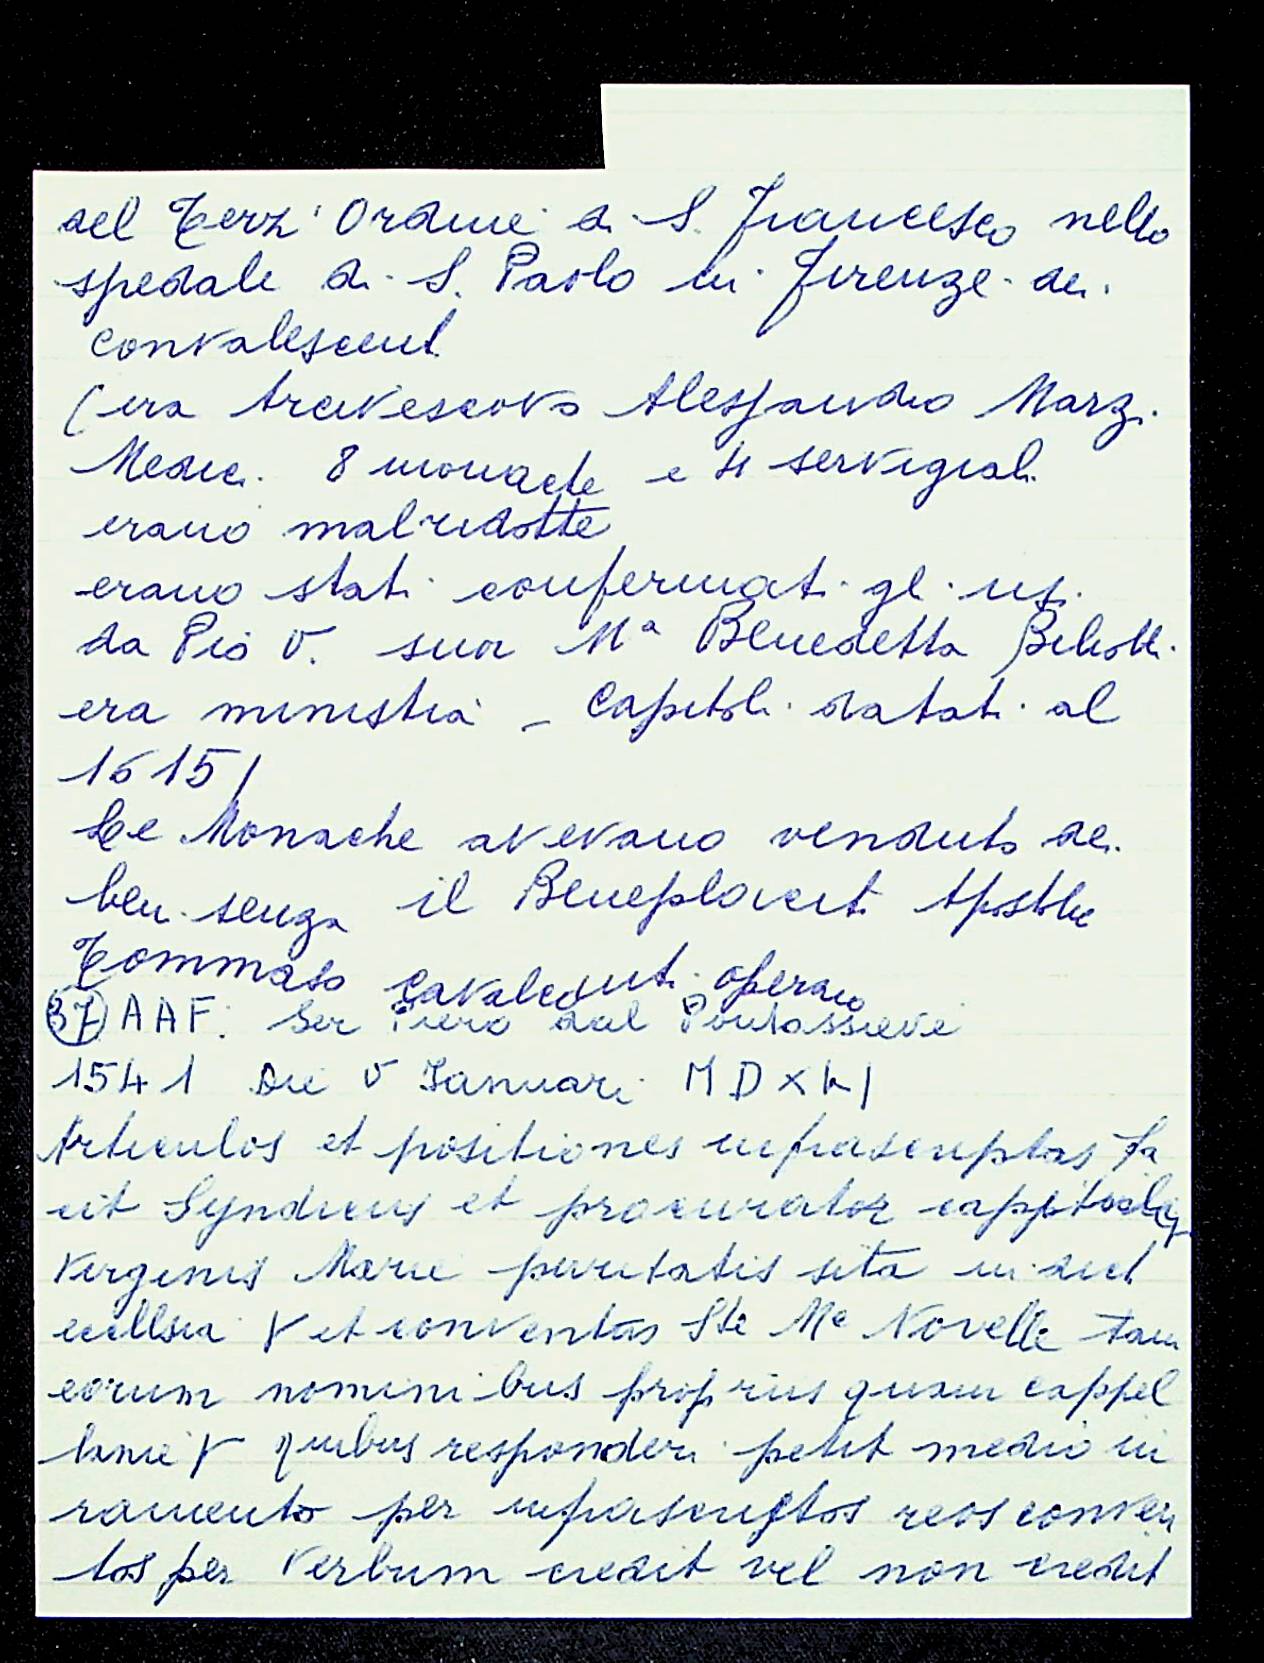 del Terz'Ordine di S. Francesco nello
spedale di S. Paolo in Firenze dei
convalescenti
(era Arcivescovo Alessandro Marzi
Medici. 8 monache e 4 servigiali
erano malridotte
erano stati confermati gli usi
da Pio V. suor Mª Benedetta Biliotti
era ministra - Capitoli datati al
1615)
Le Monache avevano venduto dei
beni senza il Beneplaciti Apostolic
Tommaso Cavalcanti operaio
(37) AAF. Ser Piero dal Pontassieve
1541 Die V Januari MDXLI
Articulos et positiones infrascriptas fa
cit Syndicus et procurator
Virginis Marie puritatis sita in dict
ecclesia et conventus Ste Me Novelle tam
eorum nominibus propriis quam cappel
lanie quibus responderi petit medio iu
ramento per infrascriptos reos conven
tos per verbum credit vel non credit